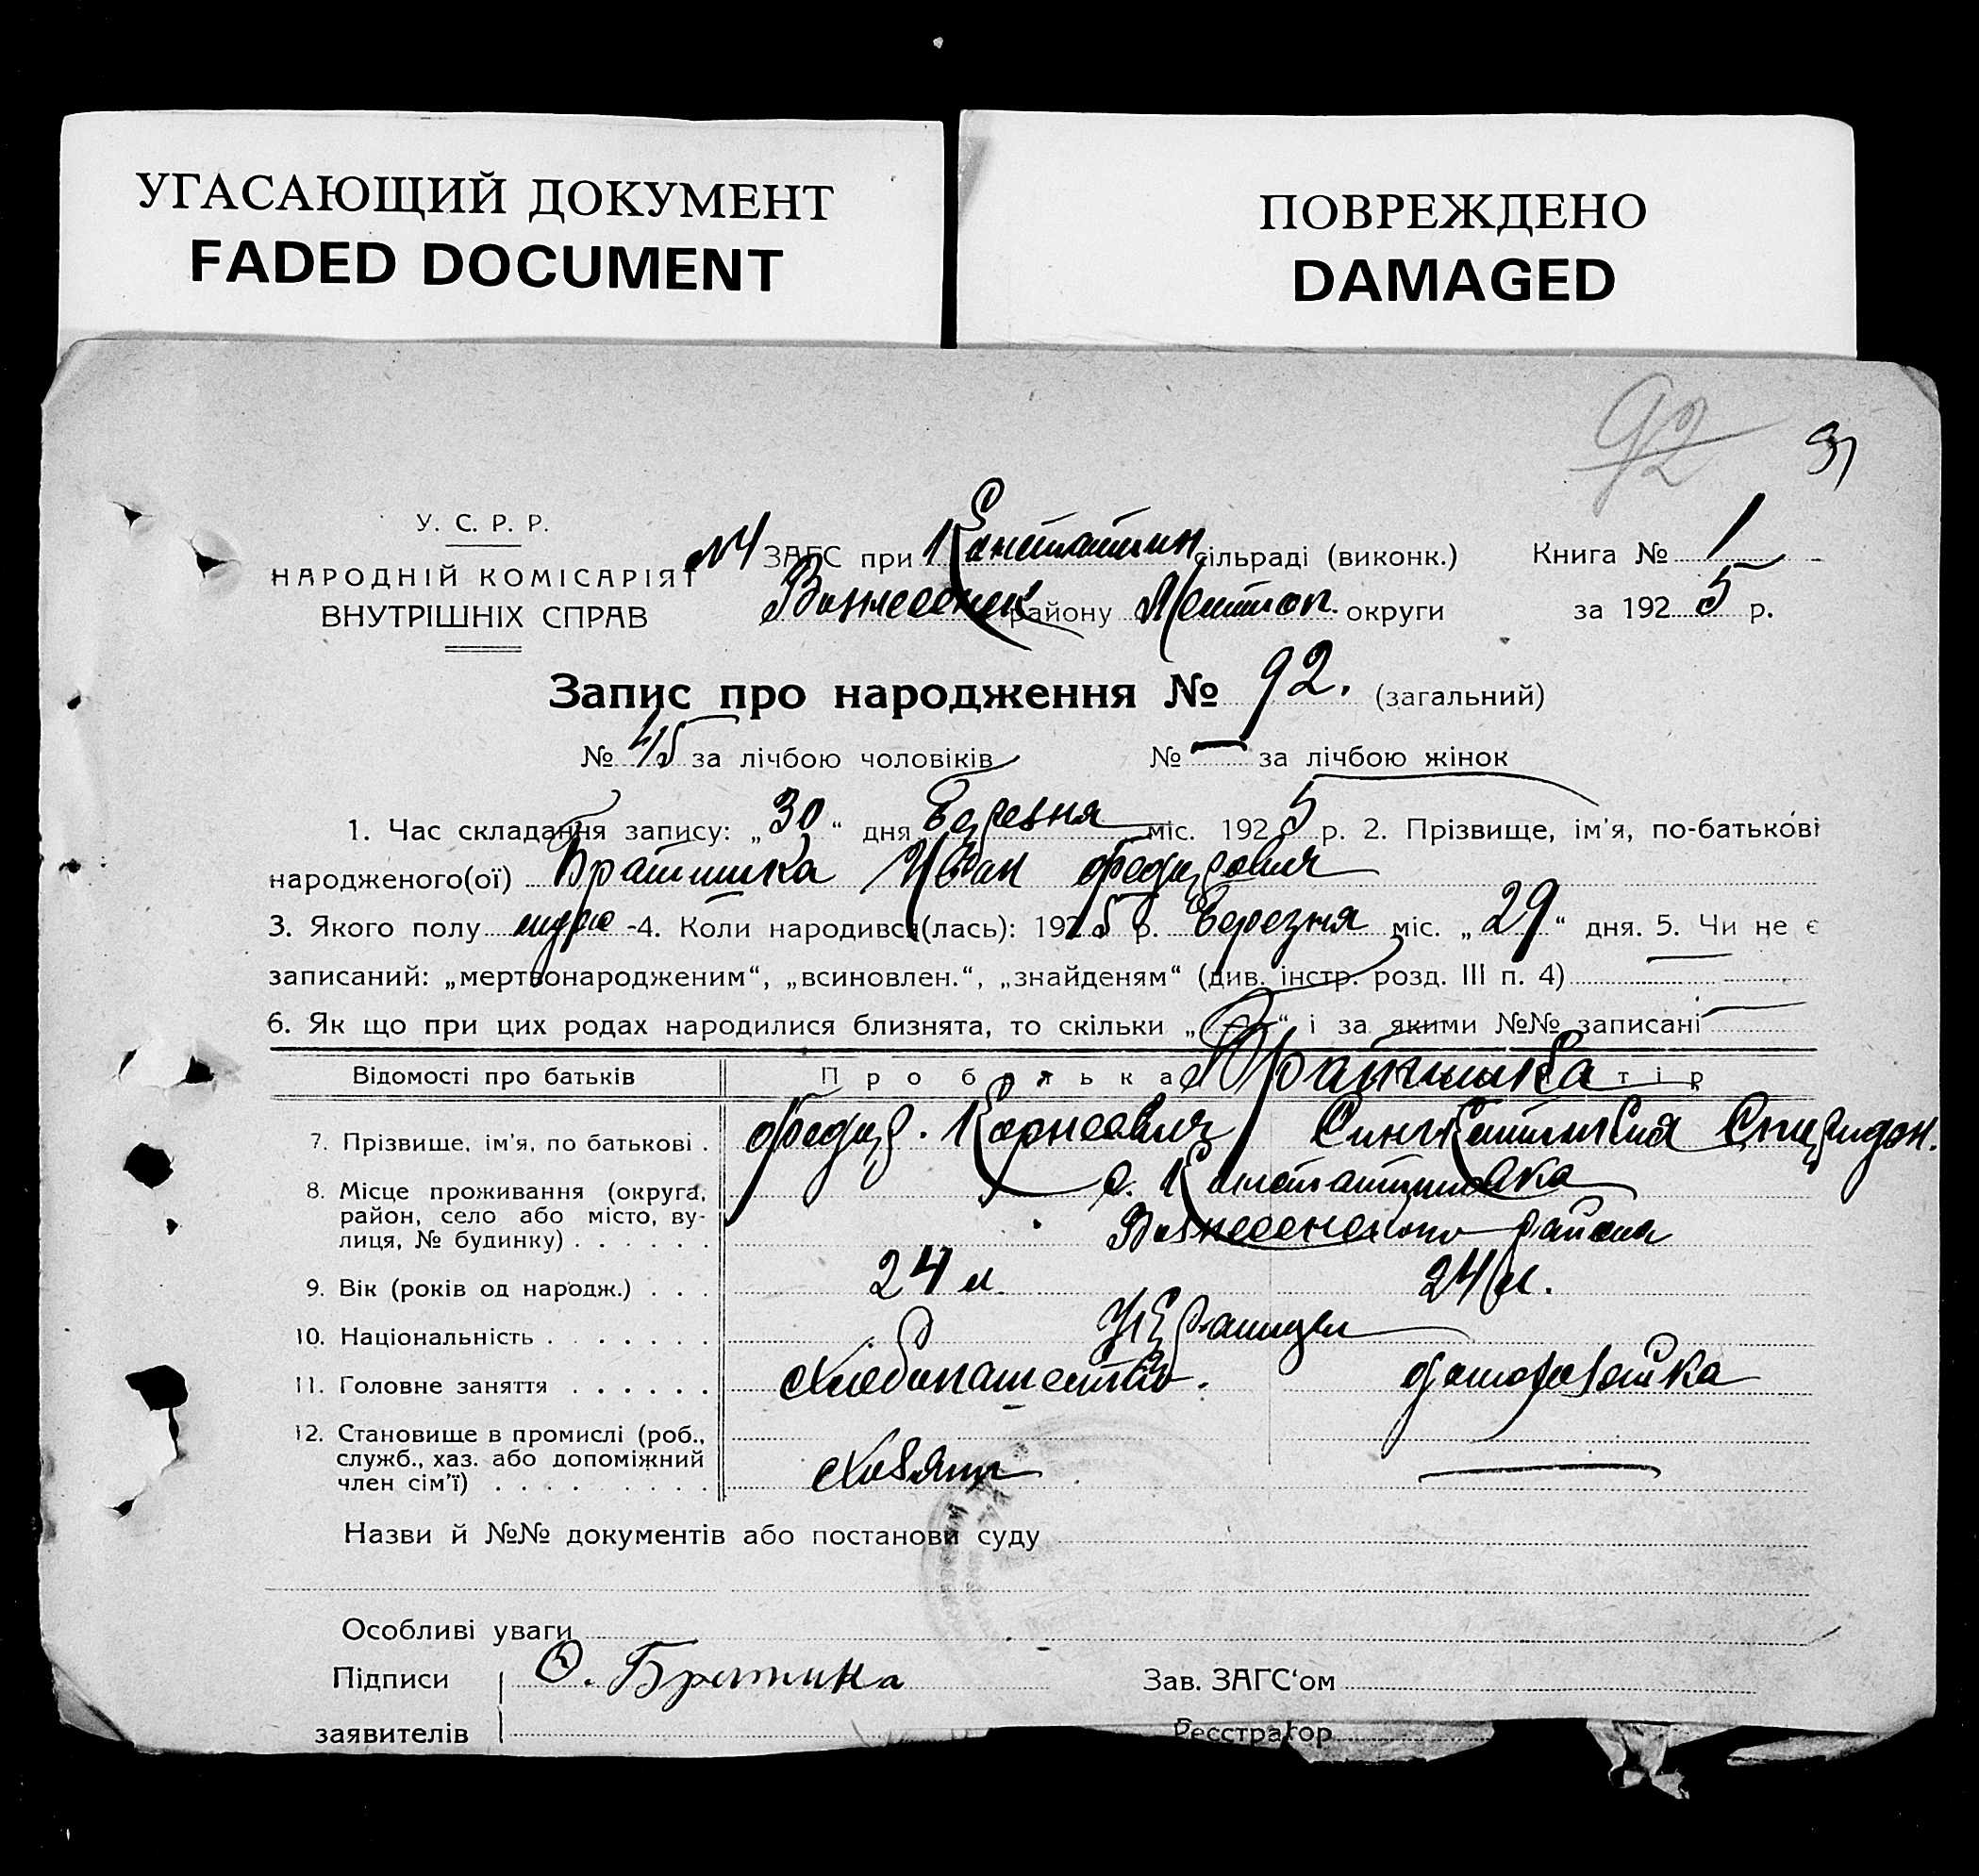 УГАСАЮЩИЙ ДОКУМЕНТ
FADED DOCUMENT
ПОВРЕЖДЕНО
DAMAGED
92 91
У. С. Р. Р.
НАРОДНІЙ КОМІСАРІЯТ
ВНУТРІШНІХ СПРАВ
№ 4 ЗАГС при Константин сільраді (виконк.) Книга № 1
Вознесенск району округи за 1925 р.
Запис про народження № 92. (загальний)
№ 45 за лічбою чоловіків № — за лічбою жінок
1. Час складання запису: „30“ дня Березня міс. 1925 р. 2. Прізвище, ім'я, по-батькові
народженого(ої) Братишка Иван Федорович
3. Якого полу -4. Коли народився(лась): 1925 р. Березня міс. „29“ дня. 5. Чи не є
записаний: „мертвонародженим“, „всиновлен.“, „знайденям“ (див. інстр. розд. III п. 4)
6. Як що при цих родах народилися близнята, то скільки „ “ і за якими №№ записані
Відомості про батьків Про батька Братишка тір
7. Прізвище, ім'я, по батькові . Федор. Корнеевич Спиридон.
8. Місце проживання (округа, район, село або місто, ву-лиця, № будинку) . . . . . . с. Константиновка
Вознесенского района
9. Вік (років од народж.) . . . 24 л. 24 л.
10. Національність . . . . . . . Украинцы
11. Головне заняття . . . . . . Хлебопашество. домохозяйка
12. Становище в промислі (роб., служб., хаз. або допоміжний член сім'ї) . . . . . . . . . Хозяин —
Назви й №№ документів або постанови суду
Особливі уваги
Підписи Ѳ. Братишка Зав. ЗАГС‘ом
заявителів Реєстратор